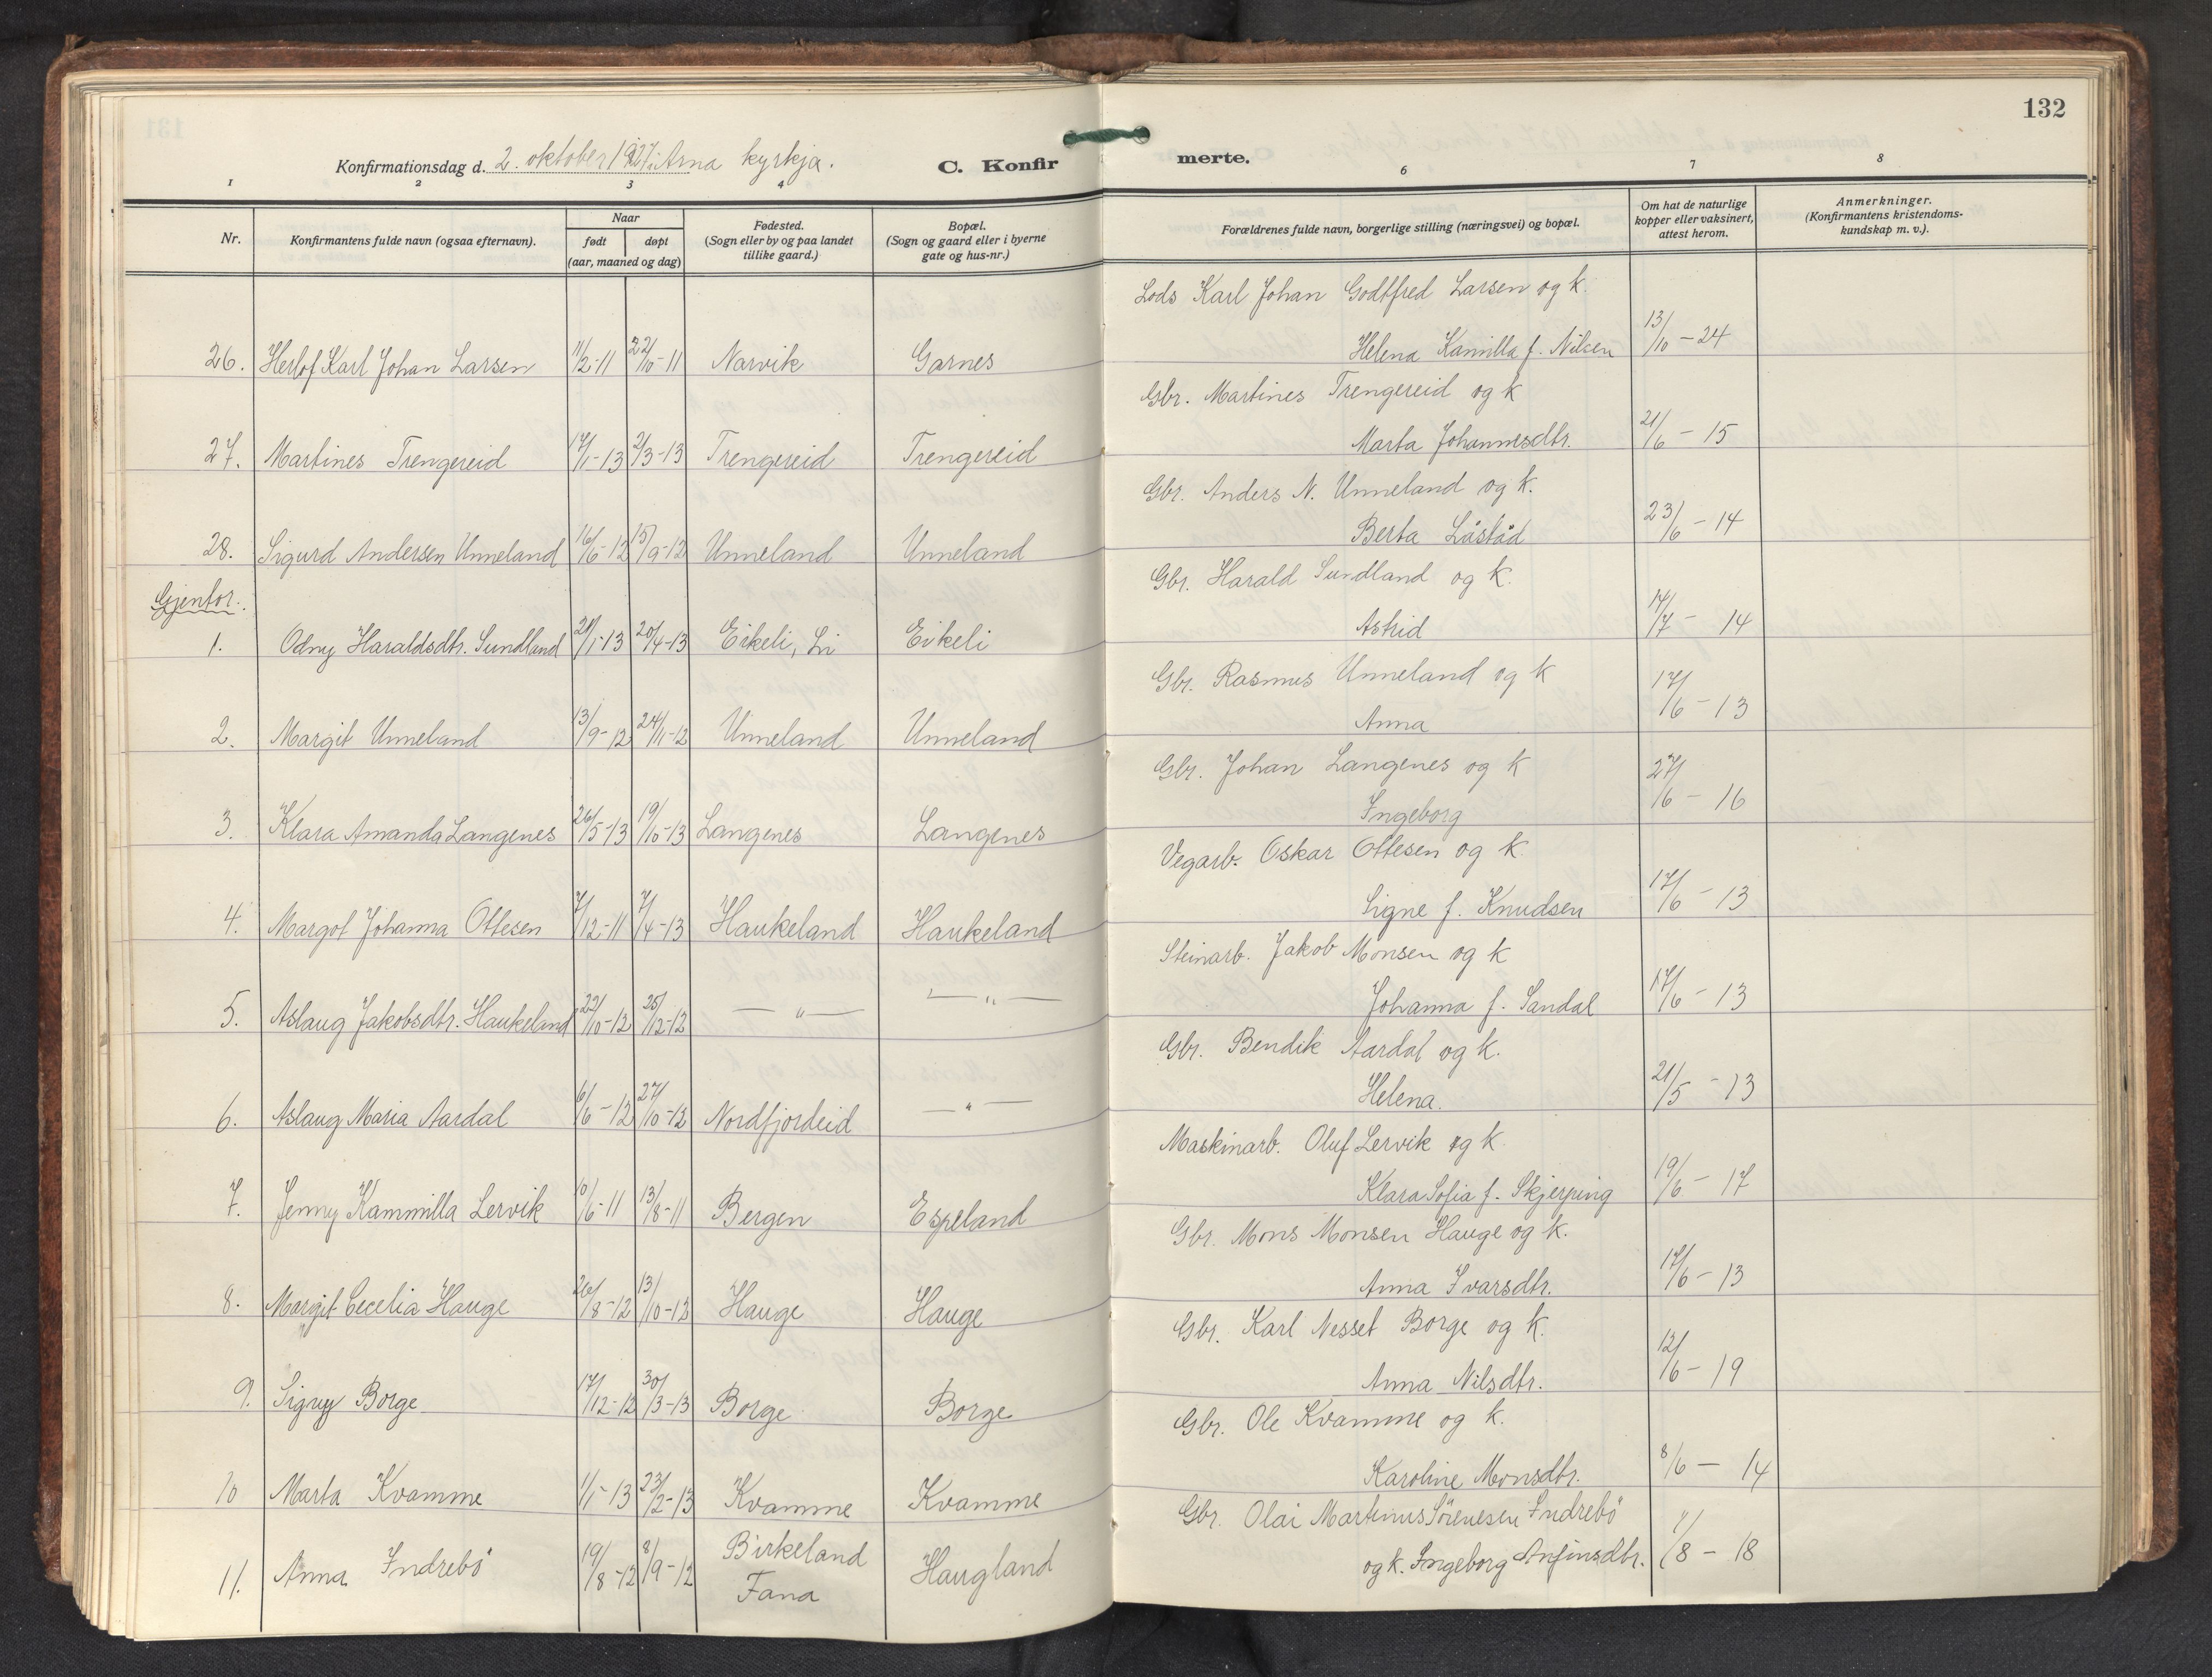 132
Konfirmationsdag d. 2. oktober 1927 i Arna kyrkja.
C. Konfirmerte.
1 2 3 4 6 7 8
Nr.
Konfirmantens fulde navn (ogsaa efternavn).
Naar
født døpt
(aar, maaned og dag)
Fødested.
(Sogn eller by og paa landet
tillike gaard.)
Bopæl.
(Sogn og gaard eller i byerne
gate og hus-nr.)
Forældrenes fulde navn, borgerlige stilling (næringsvei) og bopæl.
Om hat de naturlige
kopper eller vaksinert,
attest herom.
Anmerkninger.
(Konfirmantens kristendoms-
kundskap m. v.).
Lods Karl Johan Godtfred Larsen og k.
26. Herlof Karl Johan Larsen 11/2-11 22/10-11 Narvik Garnes Helena Kamilla f. Nilsen 13/10-24
Gbr. Martines Trengereid og k
27. Martines Trengereid 17/1-13 2/3-13 Trengereid Trengereid Marta Johannesdtr. 21/6-15
Gbr. Anders N. Unneland og k.
28. Sigurd Andersen Unneland 16/6-12 15/9-12 Unneland Unneland Berta Låstad 23/6-14
Gjentor.
Gbr. Harald Sundland og k.
1. Odny Haraldsdtr. Sundland 21/1-13 20/4-13 Eikeli, Li Eikeli Astrid 14/7-14
Gbr. Rasmus Unneland og k
2. Margit Unneland 13/9-12 24/11-12 Unneland Unneland Anna 17/6-13
Gbr. Johan Langenes og k
3. Klara Amanda Langenes 26/5-13 19/10-13 Langenes Langenes Ingeborg 27/6-16
Vegarb. Oskar Ottesen og k.
4. Margot Johanna Ottesen 7/12-11 7/4-13 Haukeland Haukeland Signe f. Knudsen 17/6-13
Steinarb. Jakob Monsen og k
5. Aslaug Jakobsdtr. Haukeland 22/10-12 25/12-12 — " — — " — Johanna f. Sandal 17/6-13
Gbr. Bendik Aardal og k.
6. Aslaug Maria Aardal 6/6-12 27/10-12 Nordfjordeid — " — Helena. 21/5-13
Maskinarb. Oluf Lervik og k.
7. Jenny Kammilla Lervik 10/6-11 13/8-11 Bergen Espeland Klara Sofia f. Skjerping 19/6-17
Gbr. Mons Monsen Hauge og k.
8. Margit Cecelia Hauge 26/8-12 13/10-13 Hauge Hauge Anna Ivarsdtr. 17/6-13
Gbr. Karl Nesset Borge og k.
9. Signy Borge 17/12-12 30/3-13 Borge Borge Anna Nilsdtr. 12/6-19
Gbr. Ole Kvamme og k.
10 Marta Kvamme 1/1-13 23/2-13 Kvamme Kvamme Karoline Monsdtr. 8/6-14
Gbr. Olai Martinus Sörensen Indrebö
11. Anna Indrebö 19/8-12 8/9-12 Birkeland Fana Haugland og k. Ingeborg Anfinsdtr. 1/8-18